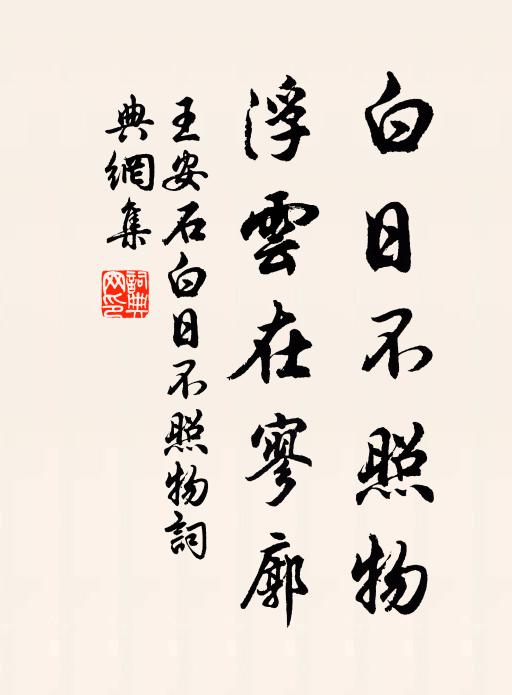 白日不照物
浮雲在寥廓
王安石白日不照物詞
典網集
詞典網印